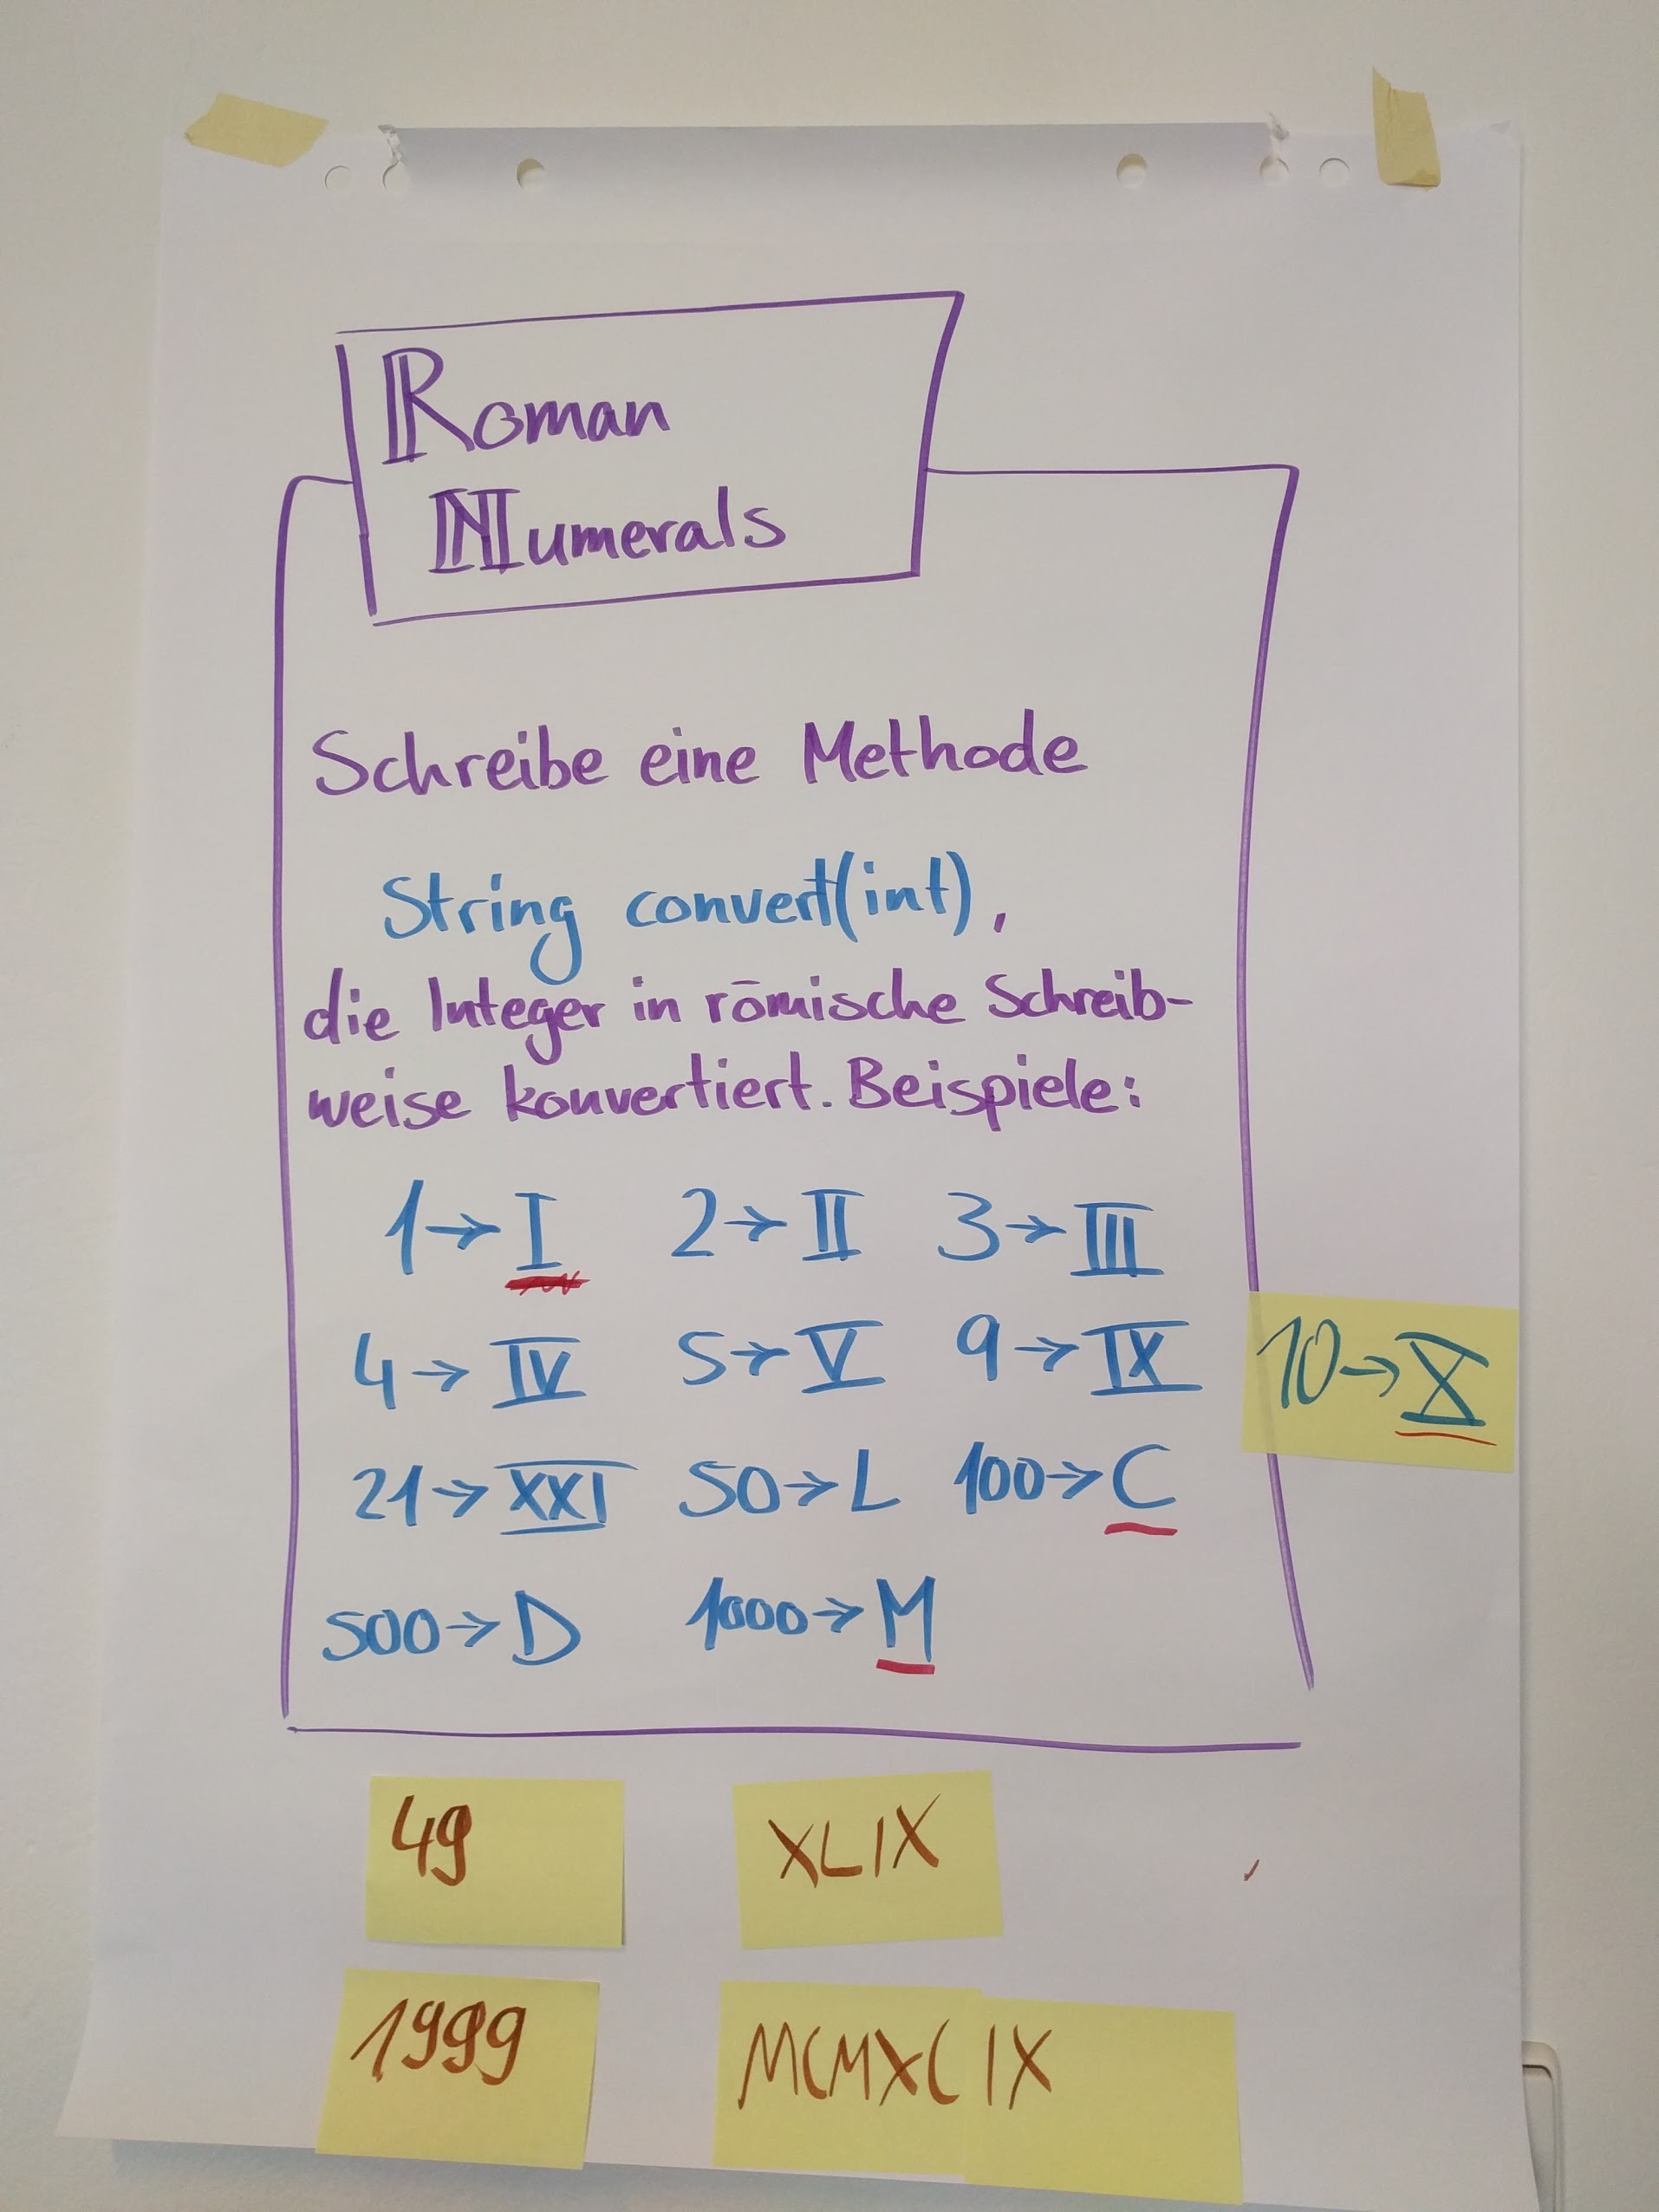 Roman
Numerals
Schreibe eine Methode
String convert(int),
die Integer in römische Schreib-
weise konvertiert. Beispiele:
1→I 2→II 3→III
4→IV 5→V 9→IX 10→X
21→XXI 50→L 100→C
500→D 1000→M
49 XLIX
1999 MCMXCIX